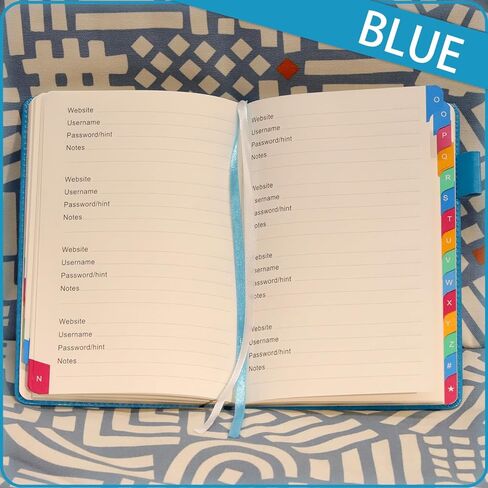 BLUE
Website
Username
Password/hint
Notes
Website
Username
Password/hint
Notes
Website
Username
Password/hint
Notes
Website
Username
Password/hint
Notes
N
Website
Username
Password/hint
Notes
Website
Username
Password/hint
Notes
Website
Username
Password/hint
Notes
Website
Username
Password/hint
Notes
O
O
P
Q
R
S
T
U
V
W
X
Y
Z
#
★